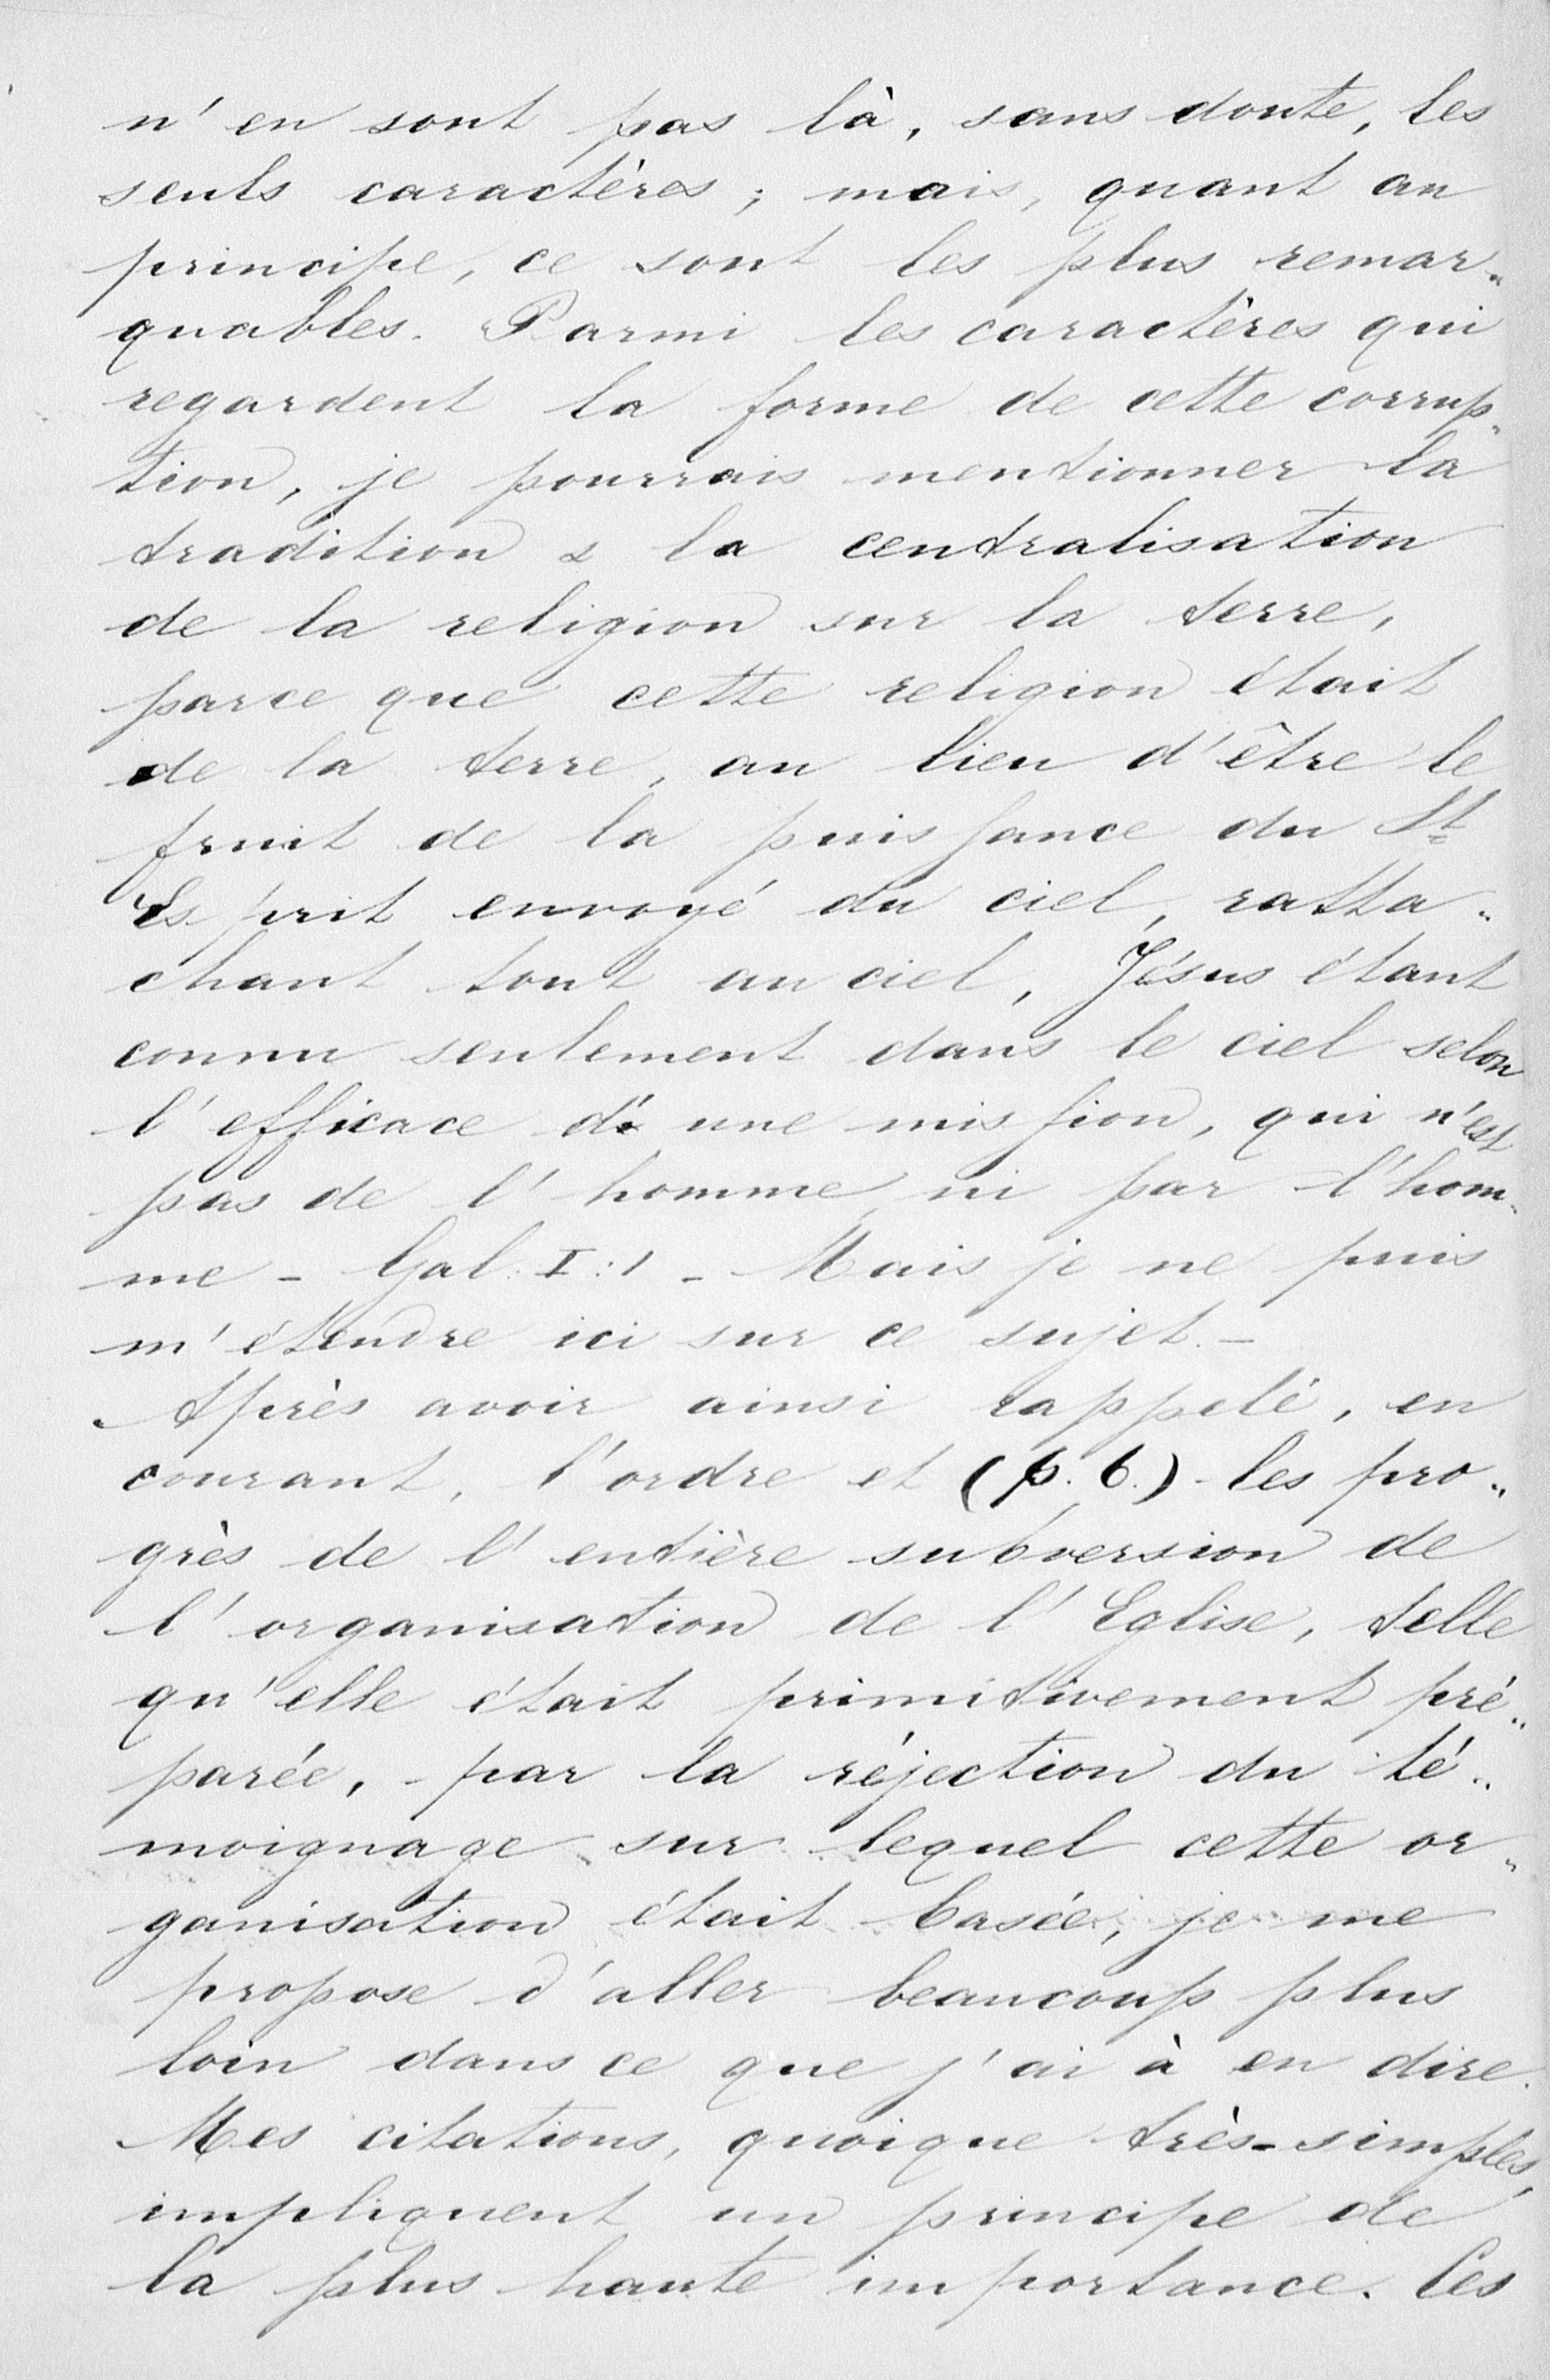 n'en sont pas là, sans doute, les
seuls caractères; mais, quant au
principe, ce sont les plus remar„
quables. Parmi les caractères qui
regardent la forme de cette corrup„
tion, je pourrais mentionner la
tradition & la centralisation
de la religion sur la terre,
parce que cette religion était
de la terre, au lieu d'être le
fruit de la puissance du St
Esprit envoyé du ciel, ratta„
chant tout au ciel, Jésus étant
connu seulement dans le ciel selon
l'efficace d'une mission, qui n'est
pas de l'homme, ni par l'hom„
me - Gal: I:1 - Mais je ne puis
m'étendre ici sur ce sujet. -
Après avoir ainsi rappelé, en
courant, l'ordre et (p. 6.) les pro„
grès de l'entière subversion de
l'organisation de l'Eglise, telle
qu'elle était primitivement pré„
parée, par la réjection du té„
moignage sur lequel cette or„
ganisation était basée, je me
propose d'aller beaucoup plus
loin dans ce que j'ai à en dire.
Mes citations, quoique très-simples,
impliquent un principe de
la plus haute importance. Ces